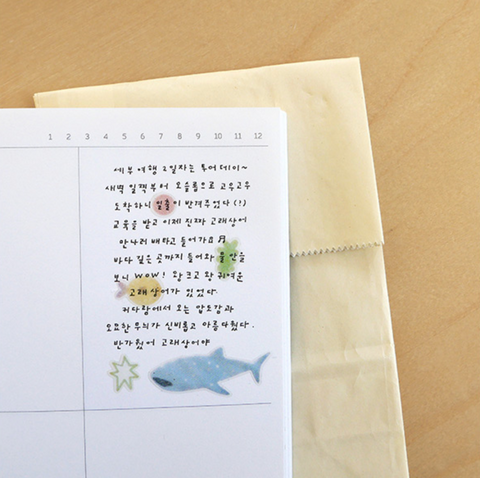 1 2 3 4 5 6 7 8 9 10 11 12
세부여행 2일차는 투어데이~
새벽 일찍부터 오슬롭으로 고우고우
도착하니 일출이 반겨주었다(!)
교육을 받고 이제 진짜 고래상어
만나러 배타고 들어가요♬
바다 깊은 곳까지 들어와 물 안을
보니 WOW! 왕크고 왕 귀여운
고래상어가 있었다.
커다람에서 오는 압도감과
오묘한 무늬가 신비롭고 아름다웠다.
반가웠어 고래상어야